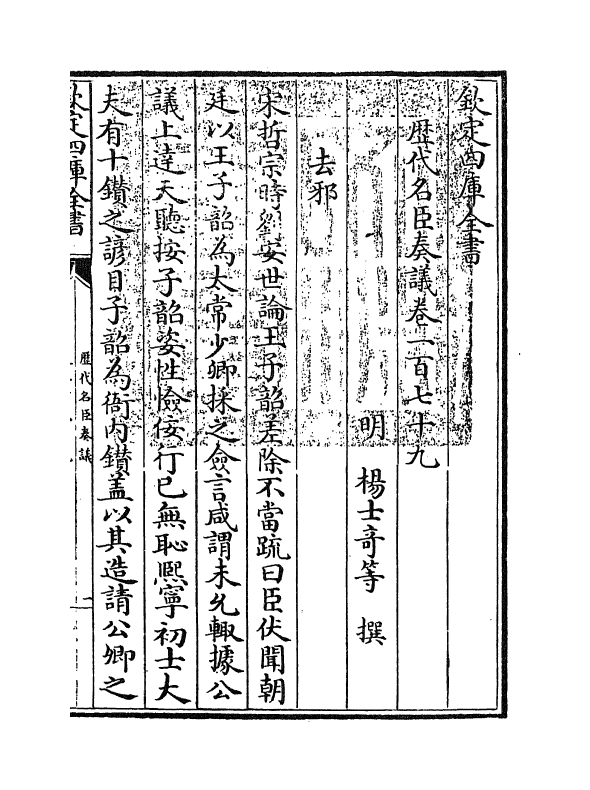 欽定四庫全書
歴代名臣奏議卷一百七十九
明　楊士竒等　撰
去邪
宋哲宗時劉安世論王子韶差除不當疏曰臣伏聞朝
廷以王子韶為太常少卿採之僉言咸謂未允輙據公
議上達天聽按子韶姿性憸佞行已無恥熈寧初士大
夫有十鑚之諺目子韶為衙内鑚盖以其造請公卿之
欽定四庫全書
歴代名臣奏議
一